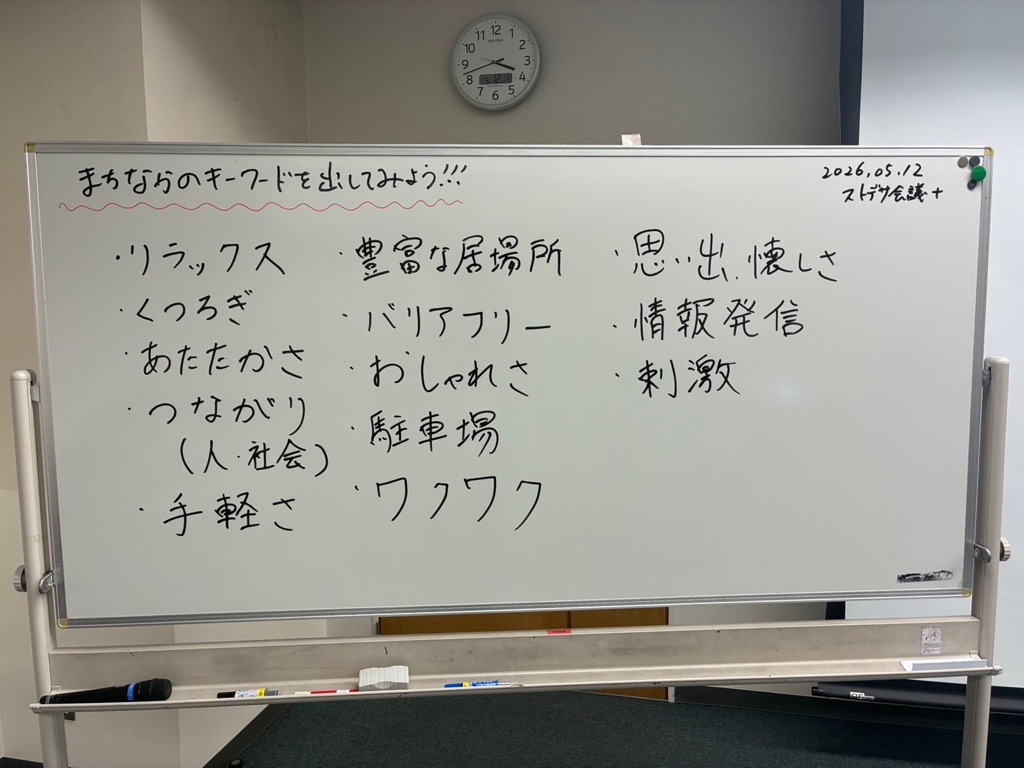 まちなかのキーワードを出してみよう!!!
2026.05.12
ストデサ会議+
・リラックス
・くつろぎ
・あたたかさ
・つながり
(人・社会)
・手軽さ
・豊富な居場所
・バリアフリー
・おしゃれさ
・駐車場
・ワクワク
・思い出、懐しさ
・情報発信
・刺激
12
1
2
3
4
5
6
7
8
9
10
11